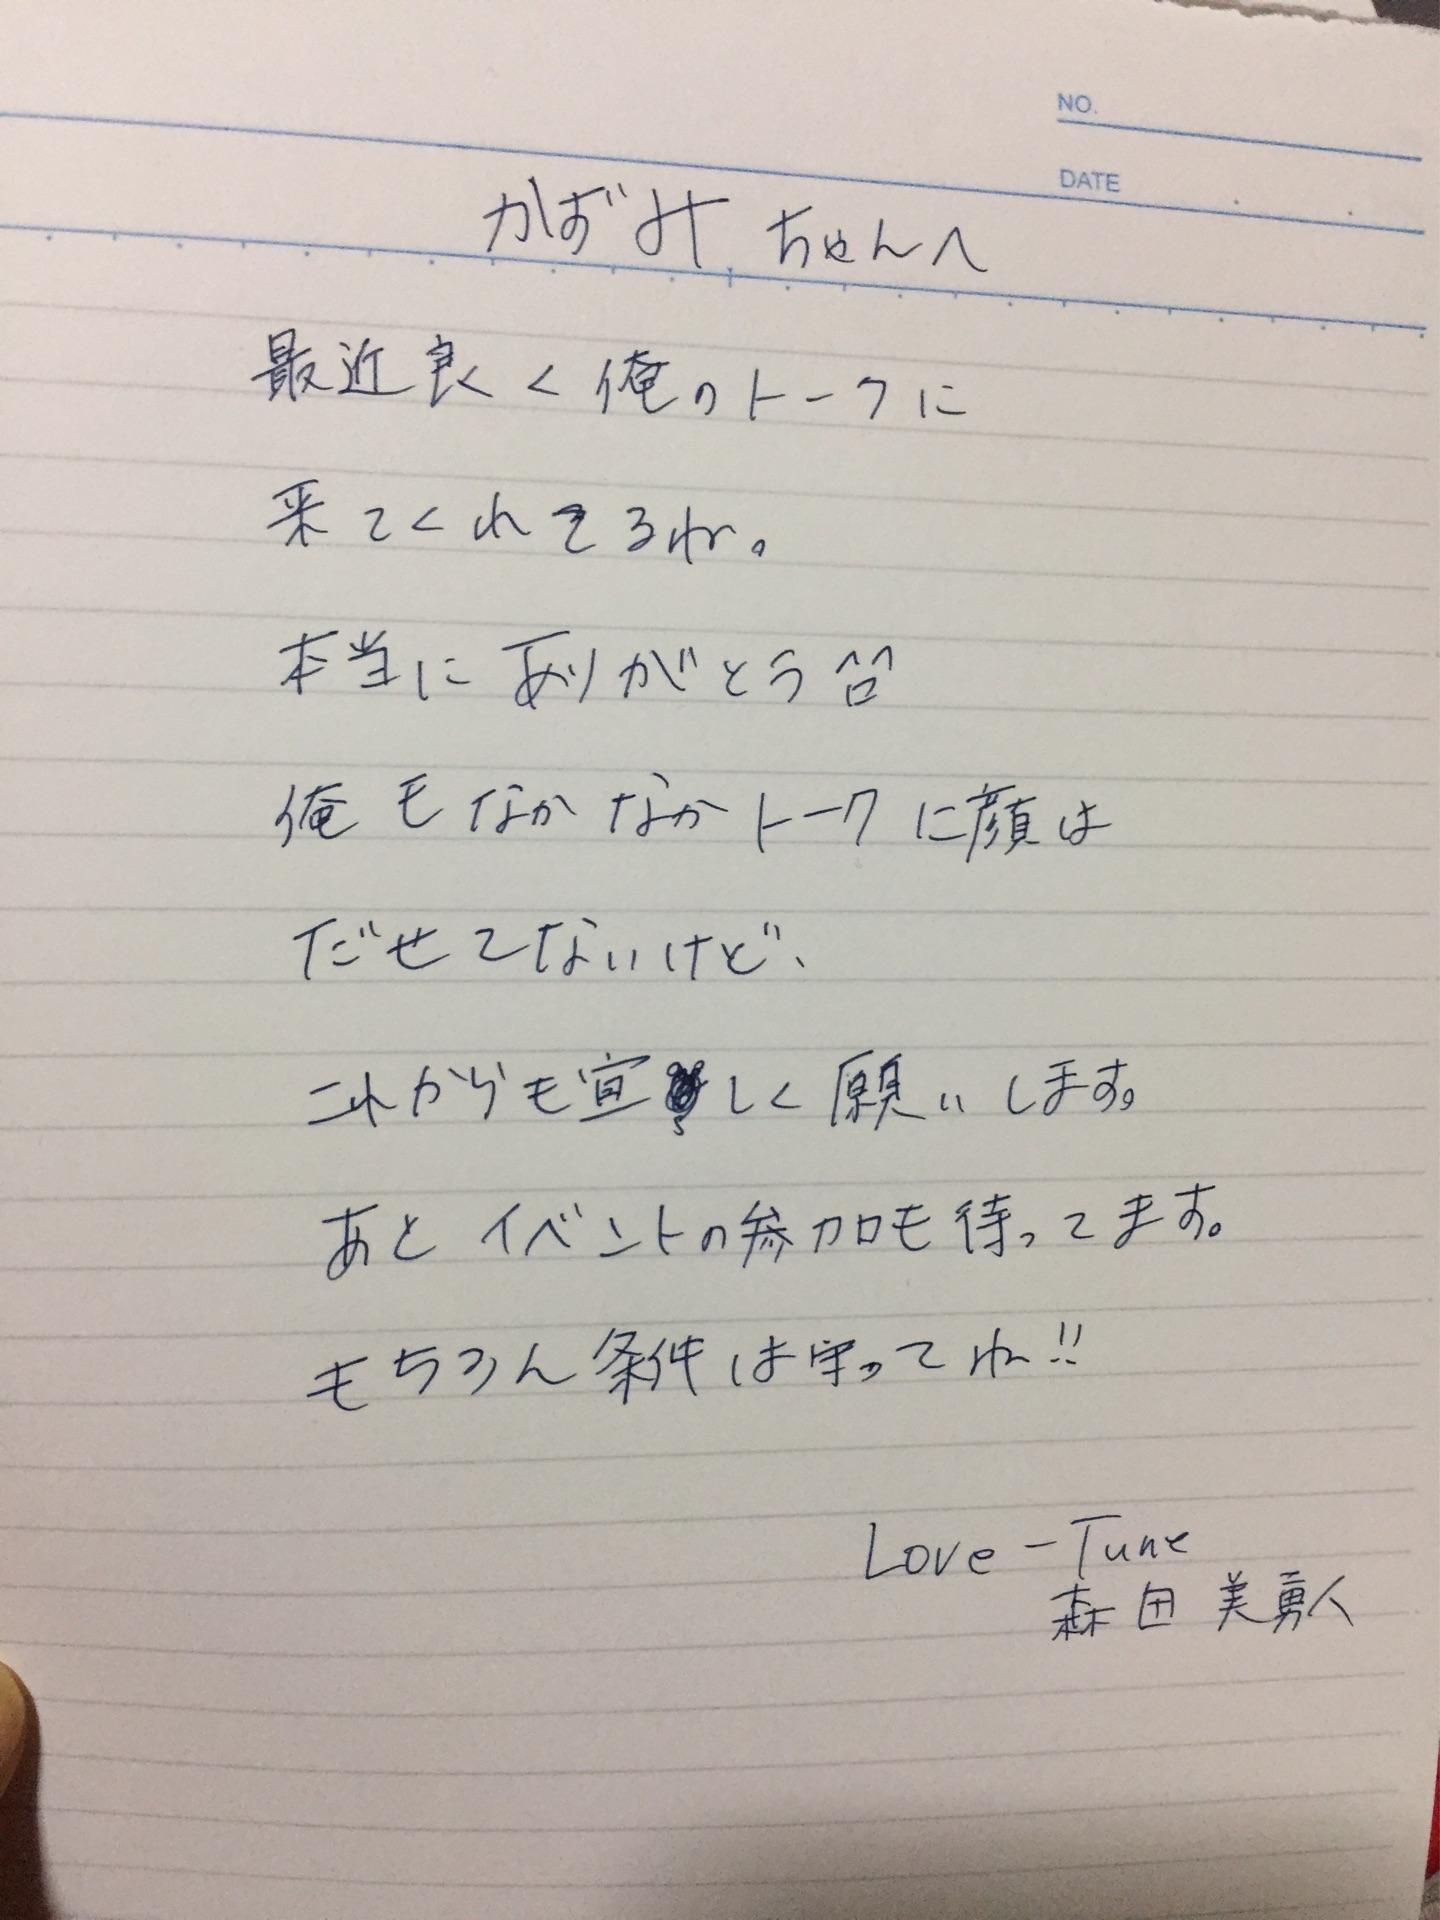 NO.
DATE
かずみちゃんへ
最近良く俺のトークに
来てくれてるね。
本当にありがとう^^
俺もなかなかトークに顔は
だせてないけど、
これからも宜しく願いします。
あとイベントの参加も待ってます。
もちろん条件は守ってね!!
Love-Tune
森田 美勇人